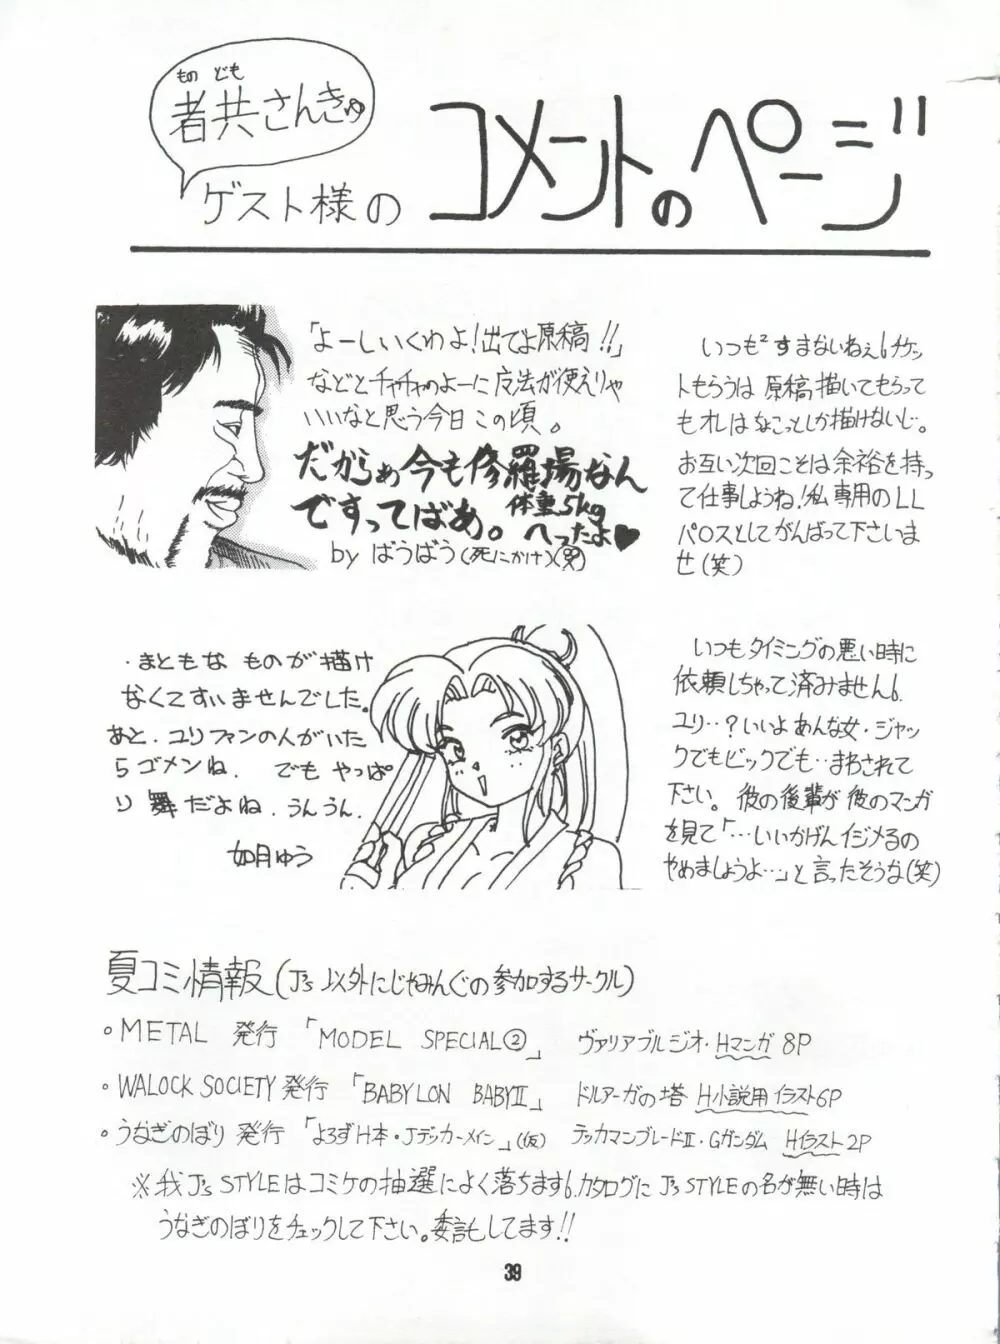 もの ども
者共さんきゅ
ゲスト様の コメントのページ
「よーしいくわよ!出てよ原稿!!」
などとチャチャのよーに魔法が使えりゃ
いいなと思う今日この頃。
だからぁ今も修羅場なん
ですってばあ。体重5kg
へったよ♥
by ばうばう(死にかけ)(男)
いつも²すまないねぇ。チケッ
トもらうは原稿描いてもらって
もオレはなこっとしか描けないし。
お互い次回こそは余裕を持っ
て仕事しようね!私専用のLL
パロスとしてがんばって下さいま
せ(笑)
・まともな ものが描け
なくてすいませんでした。
あと、ユリファンの人がいた
らゴメンね. でもやっぱ
り舞だよね.うんうん.
如月ゆう
いつもタイミングの悪い時に
依頼しちゃって済みません。
ユリ‥?いいよあんな女・ジャッ
クでもビックでも‥まわされて
下さい。彼の後輩が彼のマンガ
を見て「…いいかげんイジメるの
やめましょうよ…」と言ったそうな(笑)
夏コミ情報(J's以外にじゃみんぐの参加するサークル)
○METAL 発行 「MODEL SPECIAL②」 ヴァリアブルジオ・Hマンガ 8P
○WALOCK SOCIETY発行 「BABYLON BABYⅡ」 ドルアーガの塔 H小説用イラスト6P
○うなぎのぼり 発行 「よろずH本・Jデッカーメイン」(仮) テッカマンブレードⅡ・Gガンダム Hイラスト2P
※我J's STYLEはコミケの抽選によく落ちます。カタログにJ's STYLEの名が無い時は
うなぎのぼりをチェックして下さい。委託してます!!
39